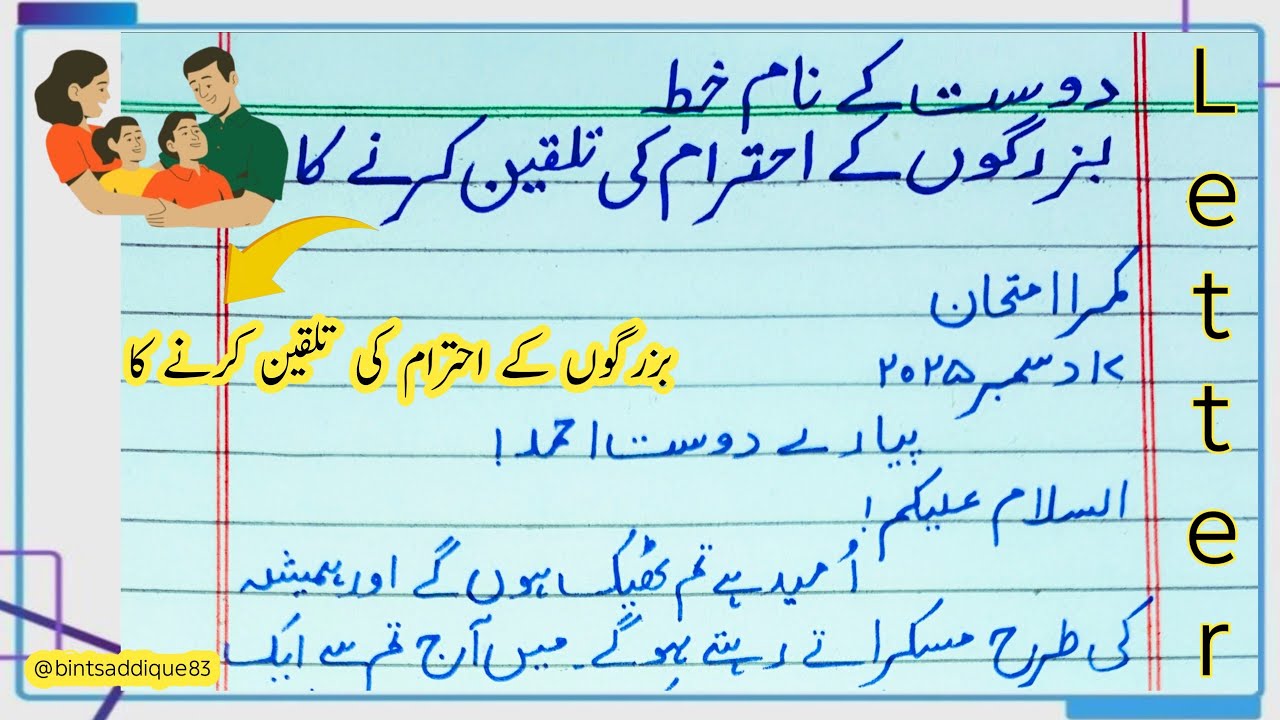 دوست کے نام خط
بزرگوں کے احترام کی تلقین کرنے کا
کمرا امتحان
۱۲ دسمبر ۲۰۲۵
پیارے دوست احمد!
السلام علیکم!
اُمید ہے تم ٹھیک ہوں گے اور ہمیشہ
کی طرح مسکراتے رہتے ہو گے۔ میں آج تم سے ایک
بزرگوں کے احترام کی تلقین کرنے کا
Letter
@bintsaddique83